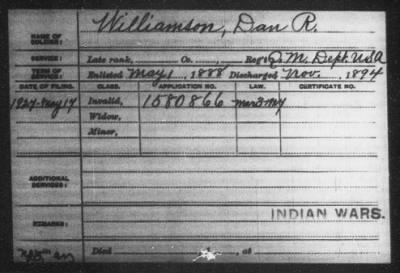 Williamson, Dan R.
NAME OF SOLDIER:
SERVICE: Late rank, Co. , Reg't Q. M. Dept. USA
TERM OF SERVICE: Enlisted May 1, 1888 Discharged Nov. , 1894
DATE OF FILING. CLASS. APPLICATION NO. LAW. CERTIFICATE NO.
1927-May 17 Invalid, 1580866
Widow,
Minor,
ADDITIONAL SERVICES:
INDIAN WARS.
REMARKS:
Died , at